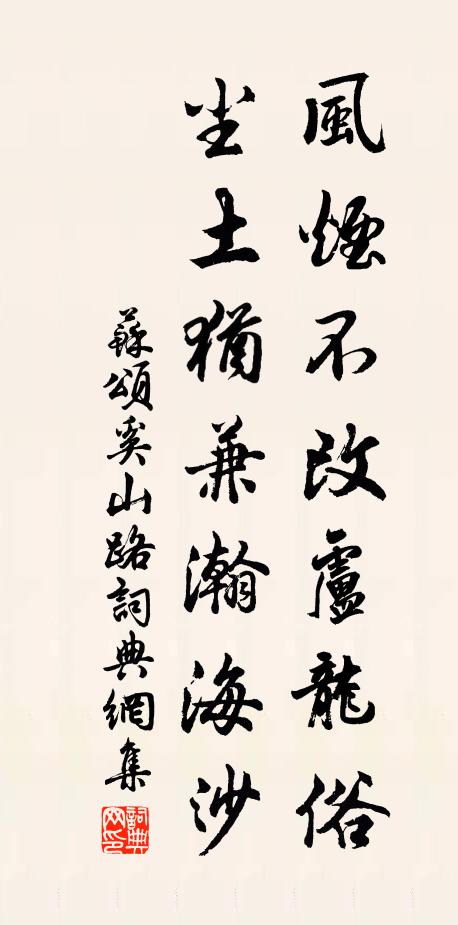 風煙不改盧龍俗
尘土猶兼瀚海沙
蘇頌奚山路詞典網集
詞典網印